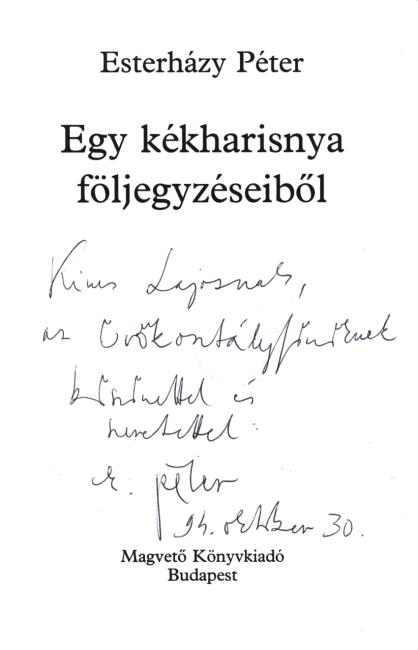 Esterházy Péter
Egy kékharisnya
följegyzéseiből
Kincs Lajosnak,
az Örökosztályfőnöknek
köszönettel és
szeretettel:
e. péter
94. október 30.
Magvető Könyvkiadó
Budapest